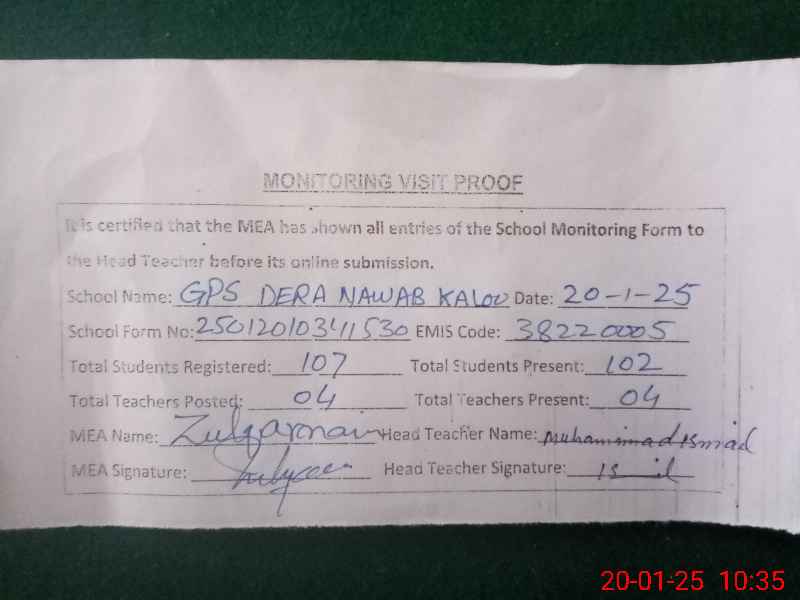 MONITORING VISIT PROOF
It is certified that the MEA has shown all entries of the School Monitoring Form to
the Head Teacher before its online submission.
School Name: GPS DERA NAWAB KALOO Date: 20-1-25
School Form No: 25012010341530 EMIS Code: 38220005
Total Students Registered: 107 Total Students Present: 102
Total Teachers Posted: 04 Total Teachers Present: 04
MEA Name: Head Teacher Name: Muhammad
MEA Signature: Head Teacher Signature:
20-01-25 10:35